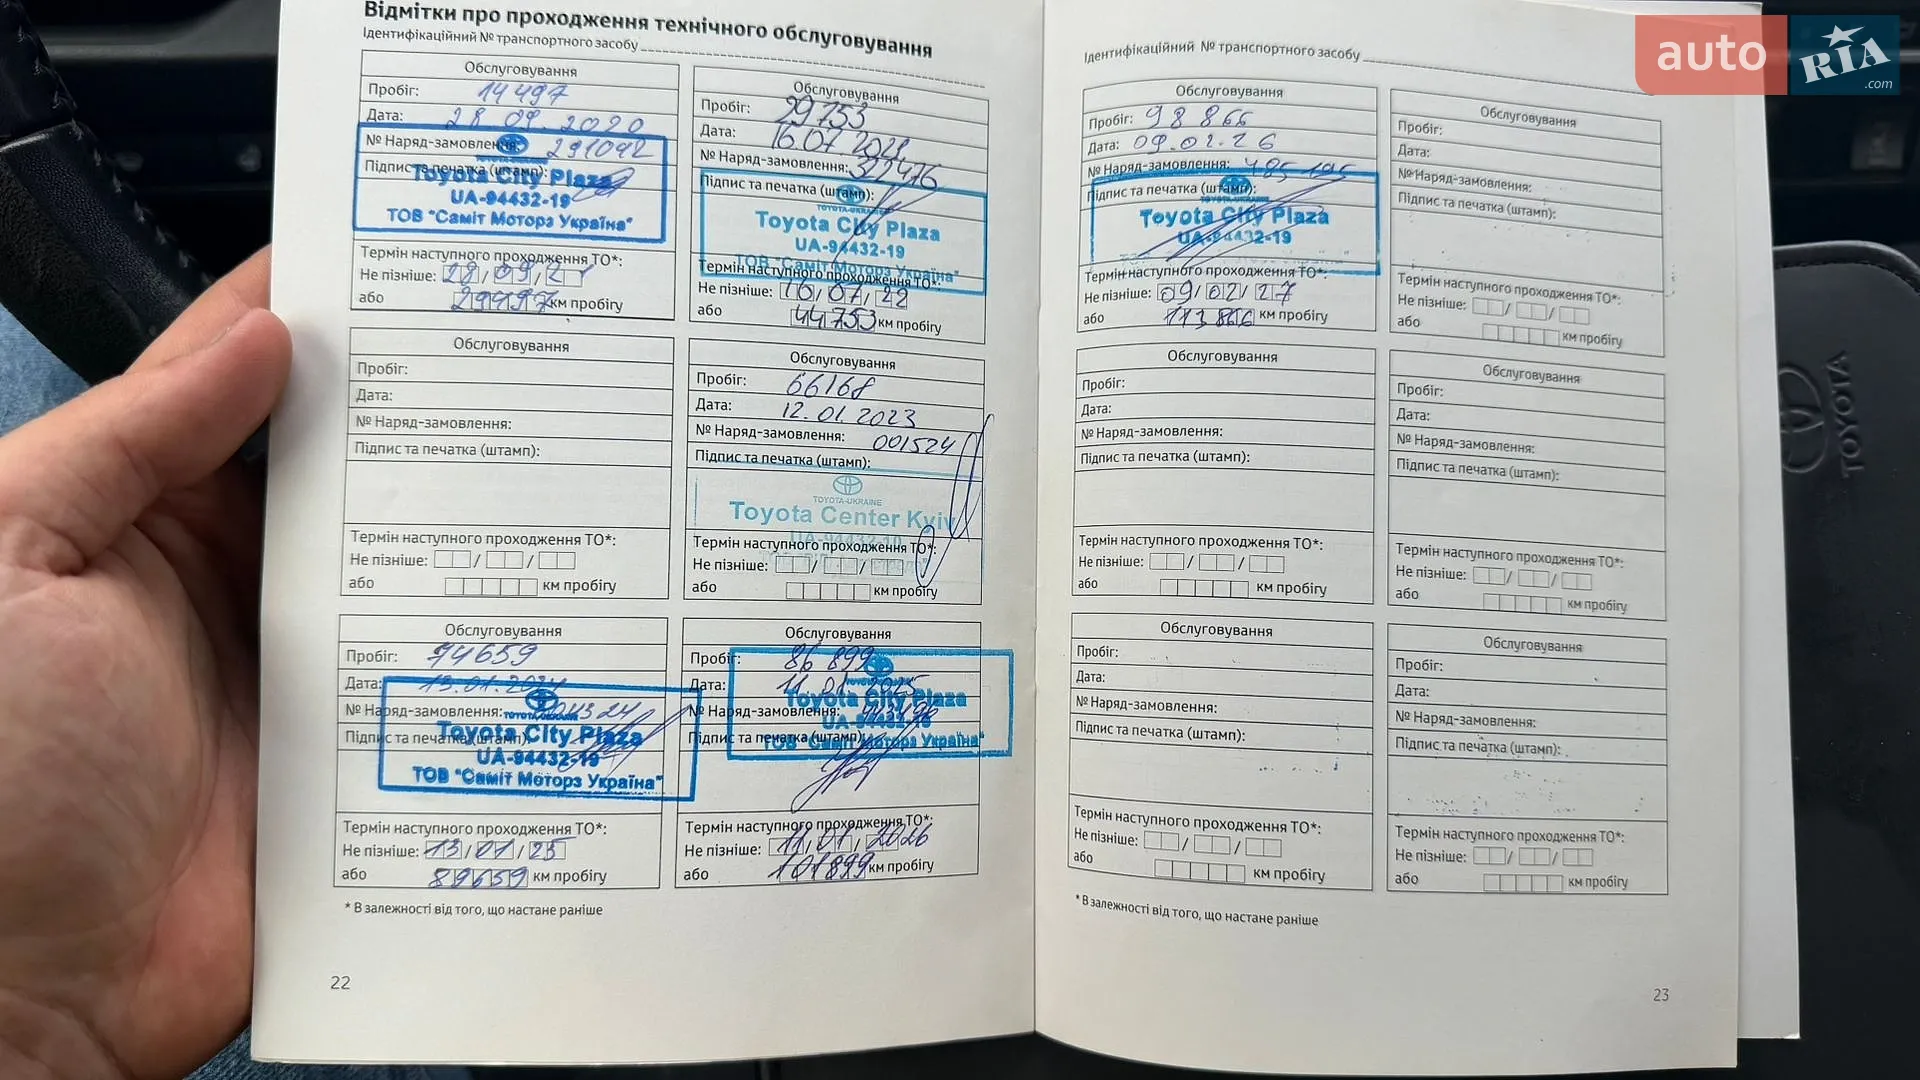 Відмітки про проходження технічного обслуговування
Ідентифікаційний № транспортного засобу
Обслуговування
Пробіг: 14497
Дата: 28 09. 2020
№ Наряд-замовлення: 291092
Підпис та печатка (штамп):
Toyota City Plaza
UA-94432-19
ТОВ "Саміт Моторз Україна"
Термін наступного проходження ТО*:
Не пізніше: 28/09/21
або 29497 км пробігу
Обслуговування
Пробіг: 29753
Дата: 16.07.2021
№ Наряд-замовлення:
Підпис та печатка (штамп):
TOYOTA-UKRAINE
Toyota City Plaza
UA-94432-19
ТОВ "Саміт Моторз Україна"
Термін наступного проходження ТО*:
Не пізніше: 16/07/22
або 44753 км пробігу
Обслуговування
Пробіг:
Дата:
№ Наряд-замовлення:
Підпис та печатка (штамп):
Термін наступного проходження ТО*:
Не пізніше: / /
або км пробігу
Обслуговування
Пробіг: 66168
Дата: 12.01.2023
№ Наряд-замовлення: 001524
Підпис та печатка (штамп):
TOYOTA-UKRAINE
Toyota Center Kyiv
UA-94432-10
Термін наступного проходження ТО*:
Не пізніше: / /
або км пробігу
Обслуговування
Пробіг: 74659
Дата: 13.01.2024
№ Наряд-замовлення:
Підпис та печатка (штамп):
TOYOTA-UKRAINE
Toyota City Plaza
UA-94432-19
ТОВ "Саміт Моторз Україна"
Термін наступного проходження ТО*:
Не пізніше: 13/01/25
або 89659 км пробігу
Обслуговування
Пробіг: 86 899
Дата: 11 01 2025
№ Наряд-замовлення:
Підпис та печатка (штамп):
Toyota City Plaza
UA-94432-19
ТОВ "Саміт Моторз Україна"
Термін наступного проходження ТО*:
Не пізніше: 11/01/2026
або 101899 км пробігу
* В залежності від того, що настане раніше
22
Ідентифікаційний № транспортного засобу
Обслуговування
Пробіг: 98 866
Дата: 09.02.26
№ Наряд-замовлення: 485 195
Підпис та печатка (штамп):
Toyota City Plaza
UA-94432-19
Термін наступного проходження ТО*:
Не пізніше: 09/02/27
або 113866 км пробігу
Обслуговування
Пробіг:
Дата:
№ Наряд-замовлення:
Підпис та печатка (штамп):
Термін наступного проходження ТО*:
Не пізніше: / /
або км пробігу
Обслуговування
Пробіг:
Дата:
№ Наряд-замовлення:
Підпис та печатка (штамп):
Термін наступного проходження ТО*:
Не пізніше: / /
або км пробігу
Обслуговування
Пробіг:
Дата:
№ Наряд-замовлення:
Підпис та печатка (штамп):
Термін наступного проходження ТО*:
Не пізніше: / /
або км пробігу
Обслуговування
Пробіг:
Дата:
№ Наряд-замовлення:
Підпис та печатка (штамп):
Термін наступного проходження ТО*:
Не пізніше: / /
або км пробігу
Обслуговування
Пробіг:
Дата:
№ Наряд-замовлення:
Підпис та печатка (штамп):
Термін наступного проходження ТО*:
Не пізніше: / /
або км пробігу
* В залежності від того, що настане раніше
23
TOYOTA
auto RIA.com